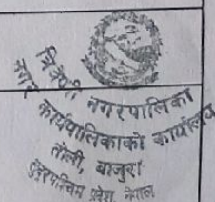 त्रिवेणी नगरपालिका
नगर कार्यपालिकाको कार्यालय
तोली, बाजुरा
सुदूरपश्चिम प्रदेश नेपाल